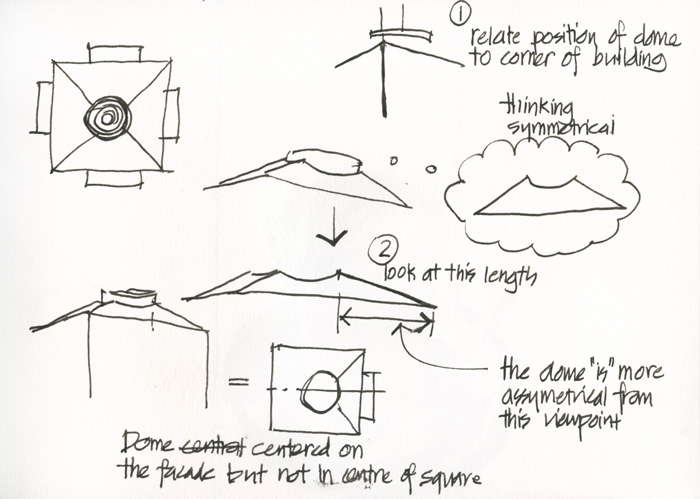 1
relate position of dome
to corner of building
thinking
symmetrical
2
look at this length
the dome "is" more
assymetrical from
this viewpoint
=
Dome central centered on
the facade but not in centre of square